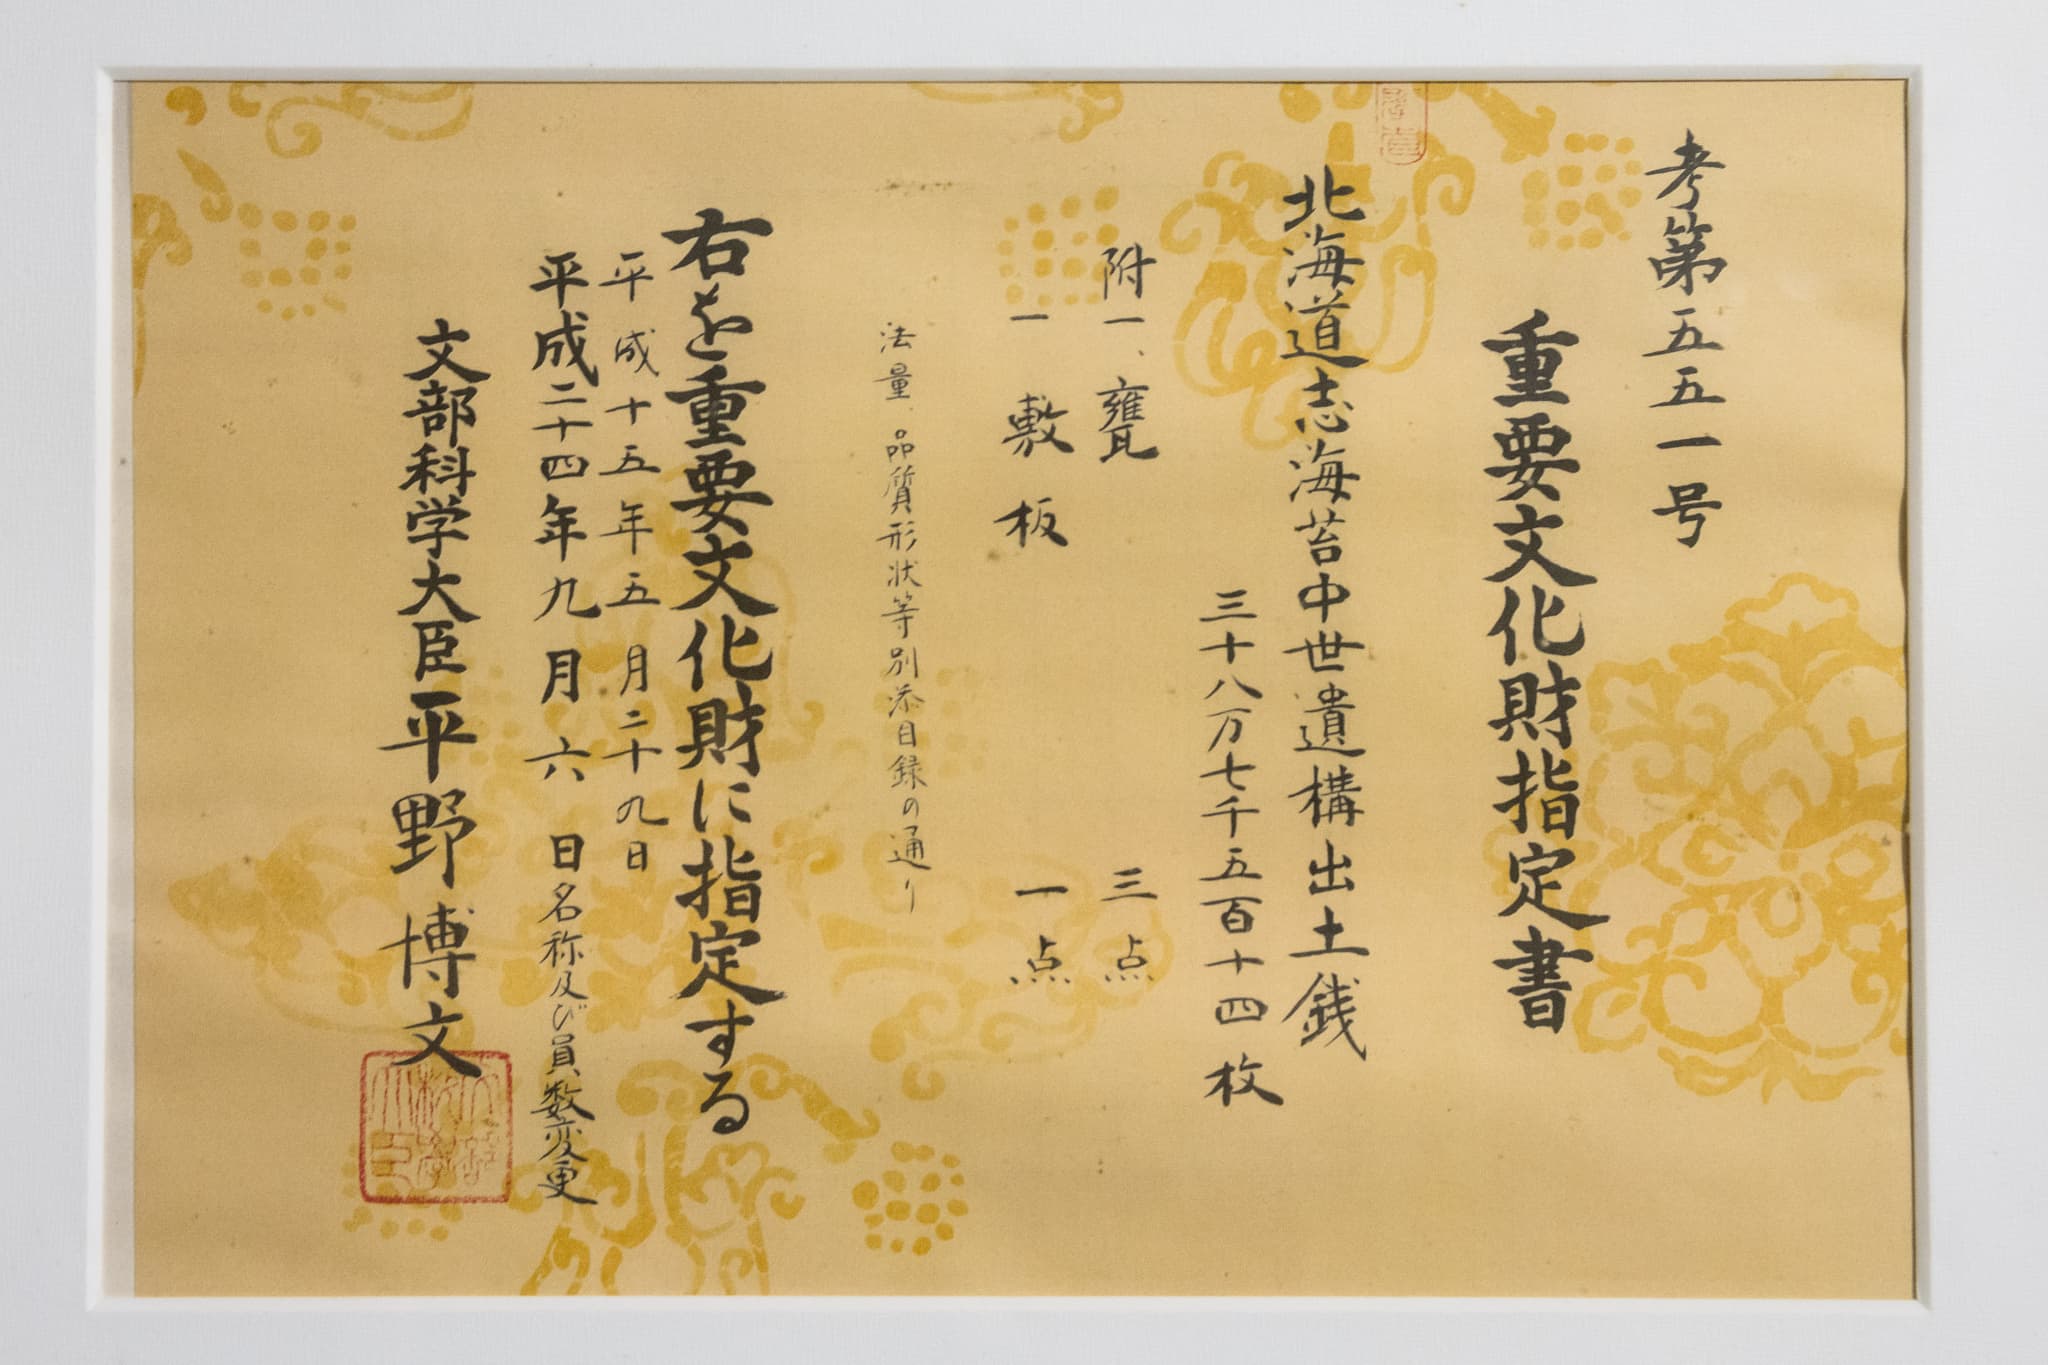 考第五五一号
重要文化財指定書
北海道志海苔中世遺構出土銭
三十八万七千五百十四枚
附一、甕 三点
一 敷板 一点
法量、品質形状等別添目録の通り
右を重要文化財に指定する
平成十五年五月二十九日
平成二十四年九月六日名称及び員数変更
文部科学大臣平野博文